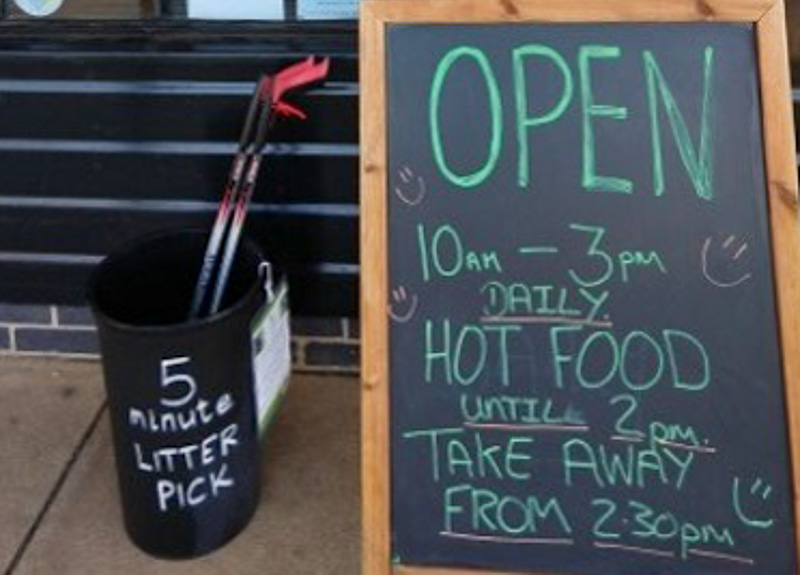 5
minute
LITTER
PICK
OPEN
10AM - 3pm
DAILY.
HOT FOOD
UNTIL 2pm.
TAKE AWAY
FROM 2.30pm